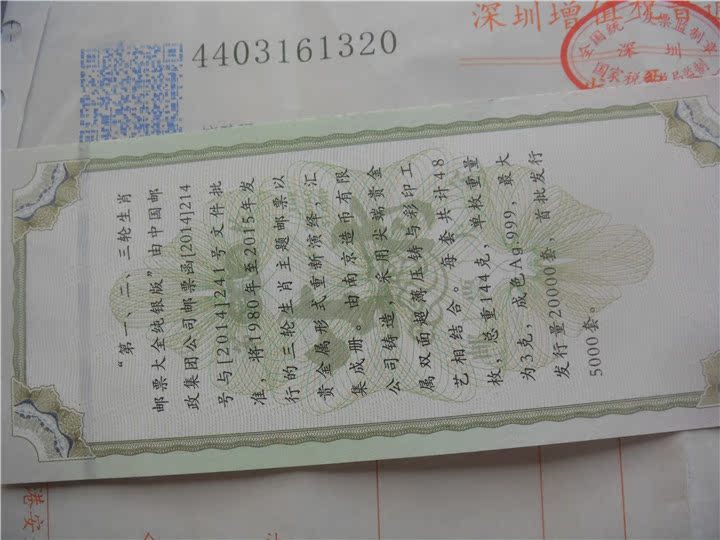 深圳增值税
4403161320
深圳
“第一、二、三轮生肖
邮票大全纯银版”由中国邮
政集团公司邮票函[2014]214
号与[2014]241号文件批
准，将1980年至2015年发
行的三轮生肖主题邮票以
贵金属形式重新演绎，汇
集成册。由南京造币有限
公司铸造，采用尖端贵金
属双面超薄压铸与彩印工
艺相结合。每套共计48
枚，总重144克，单枚重量
为3克，成色Ag.999，最大
发行量20000套，首批发行
5000套。